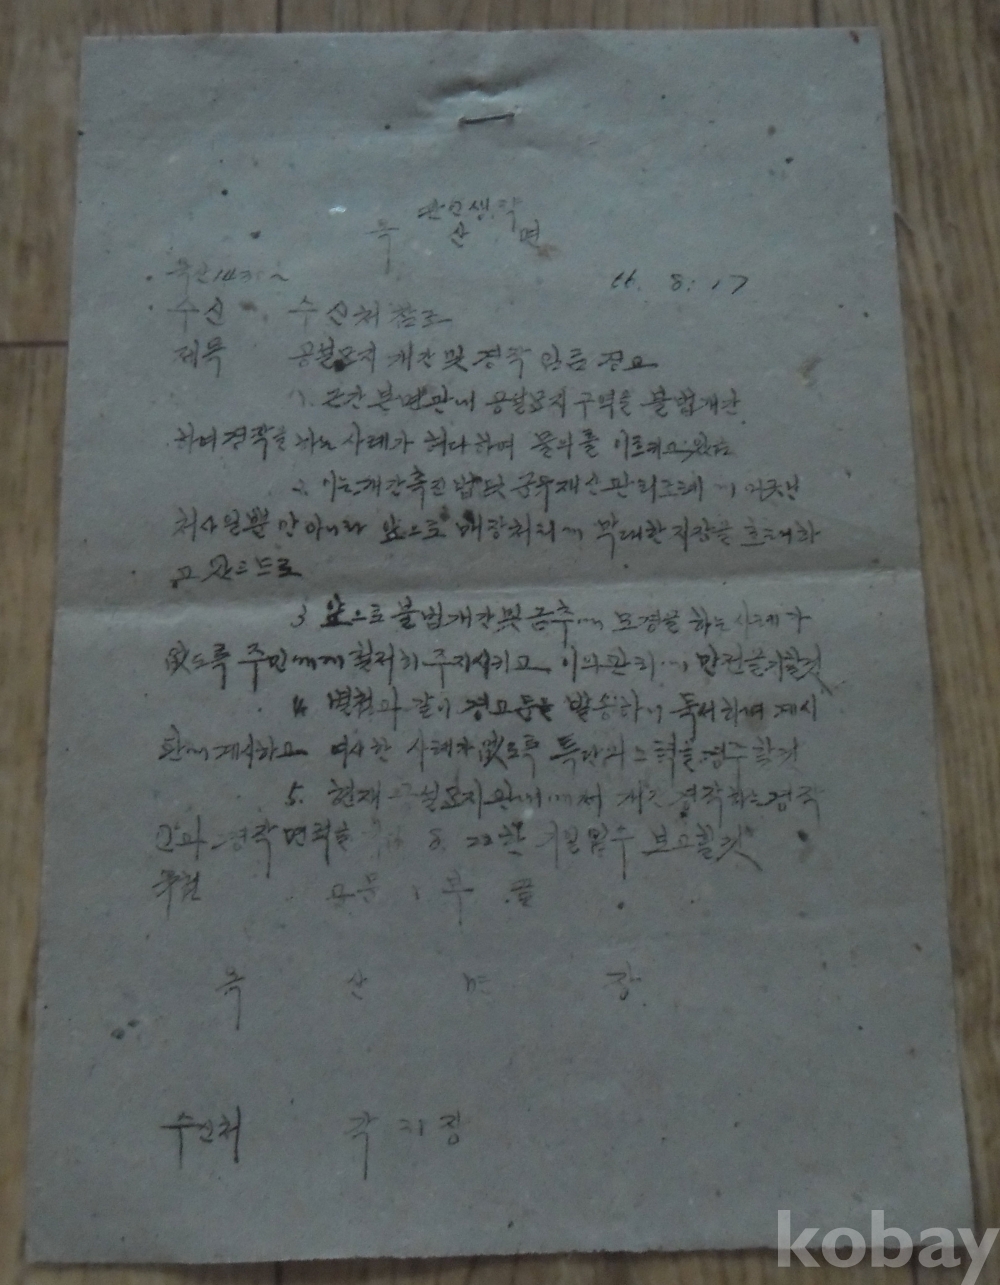 관인생략
옥 산 면
66. 8. 17
수신 수신처 참조
제목 공설묘지 개간 및 경작 엄금 경고
1. 근간 본면관내 공설묘지 구역을 불법개간
하여 경작을 하는 사례가 허다하며 물의를 이르키고 있음
2. 이는 개간촉진법 및 공유재산관리조례에 어긋난
처사일뿐만 아니라 앞으로 매장처리에 막대한 지장을 초래하
고 있으므로
3 앞으로 불법개간 및 금추에 모경을 하는 사례가
없도록 주민에게 철저히 주지시키고 이의 관리에 만전을 기할것
4 별첨과 같이 경고문을 발송하니 독서하여 게시
판에 게시하고 여사한 사례가 없도록 특단의 노력을 경주할것
5. 현재 공설묘지 관내에서 개간 경작하는 경작
인과 경작면적을 66 8. 22한 기일엄수 보고할것
공문 1부 끝
옥 산 면 장
수신처 각 리 장
kobay